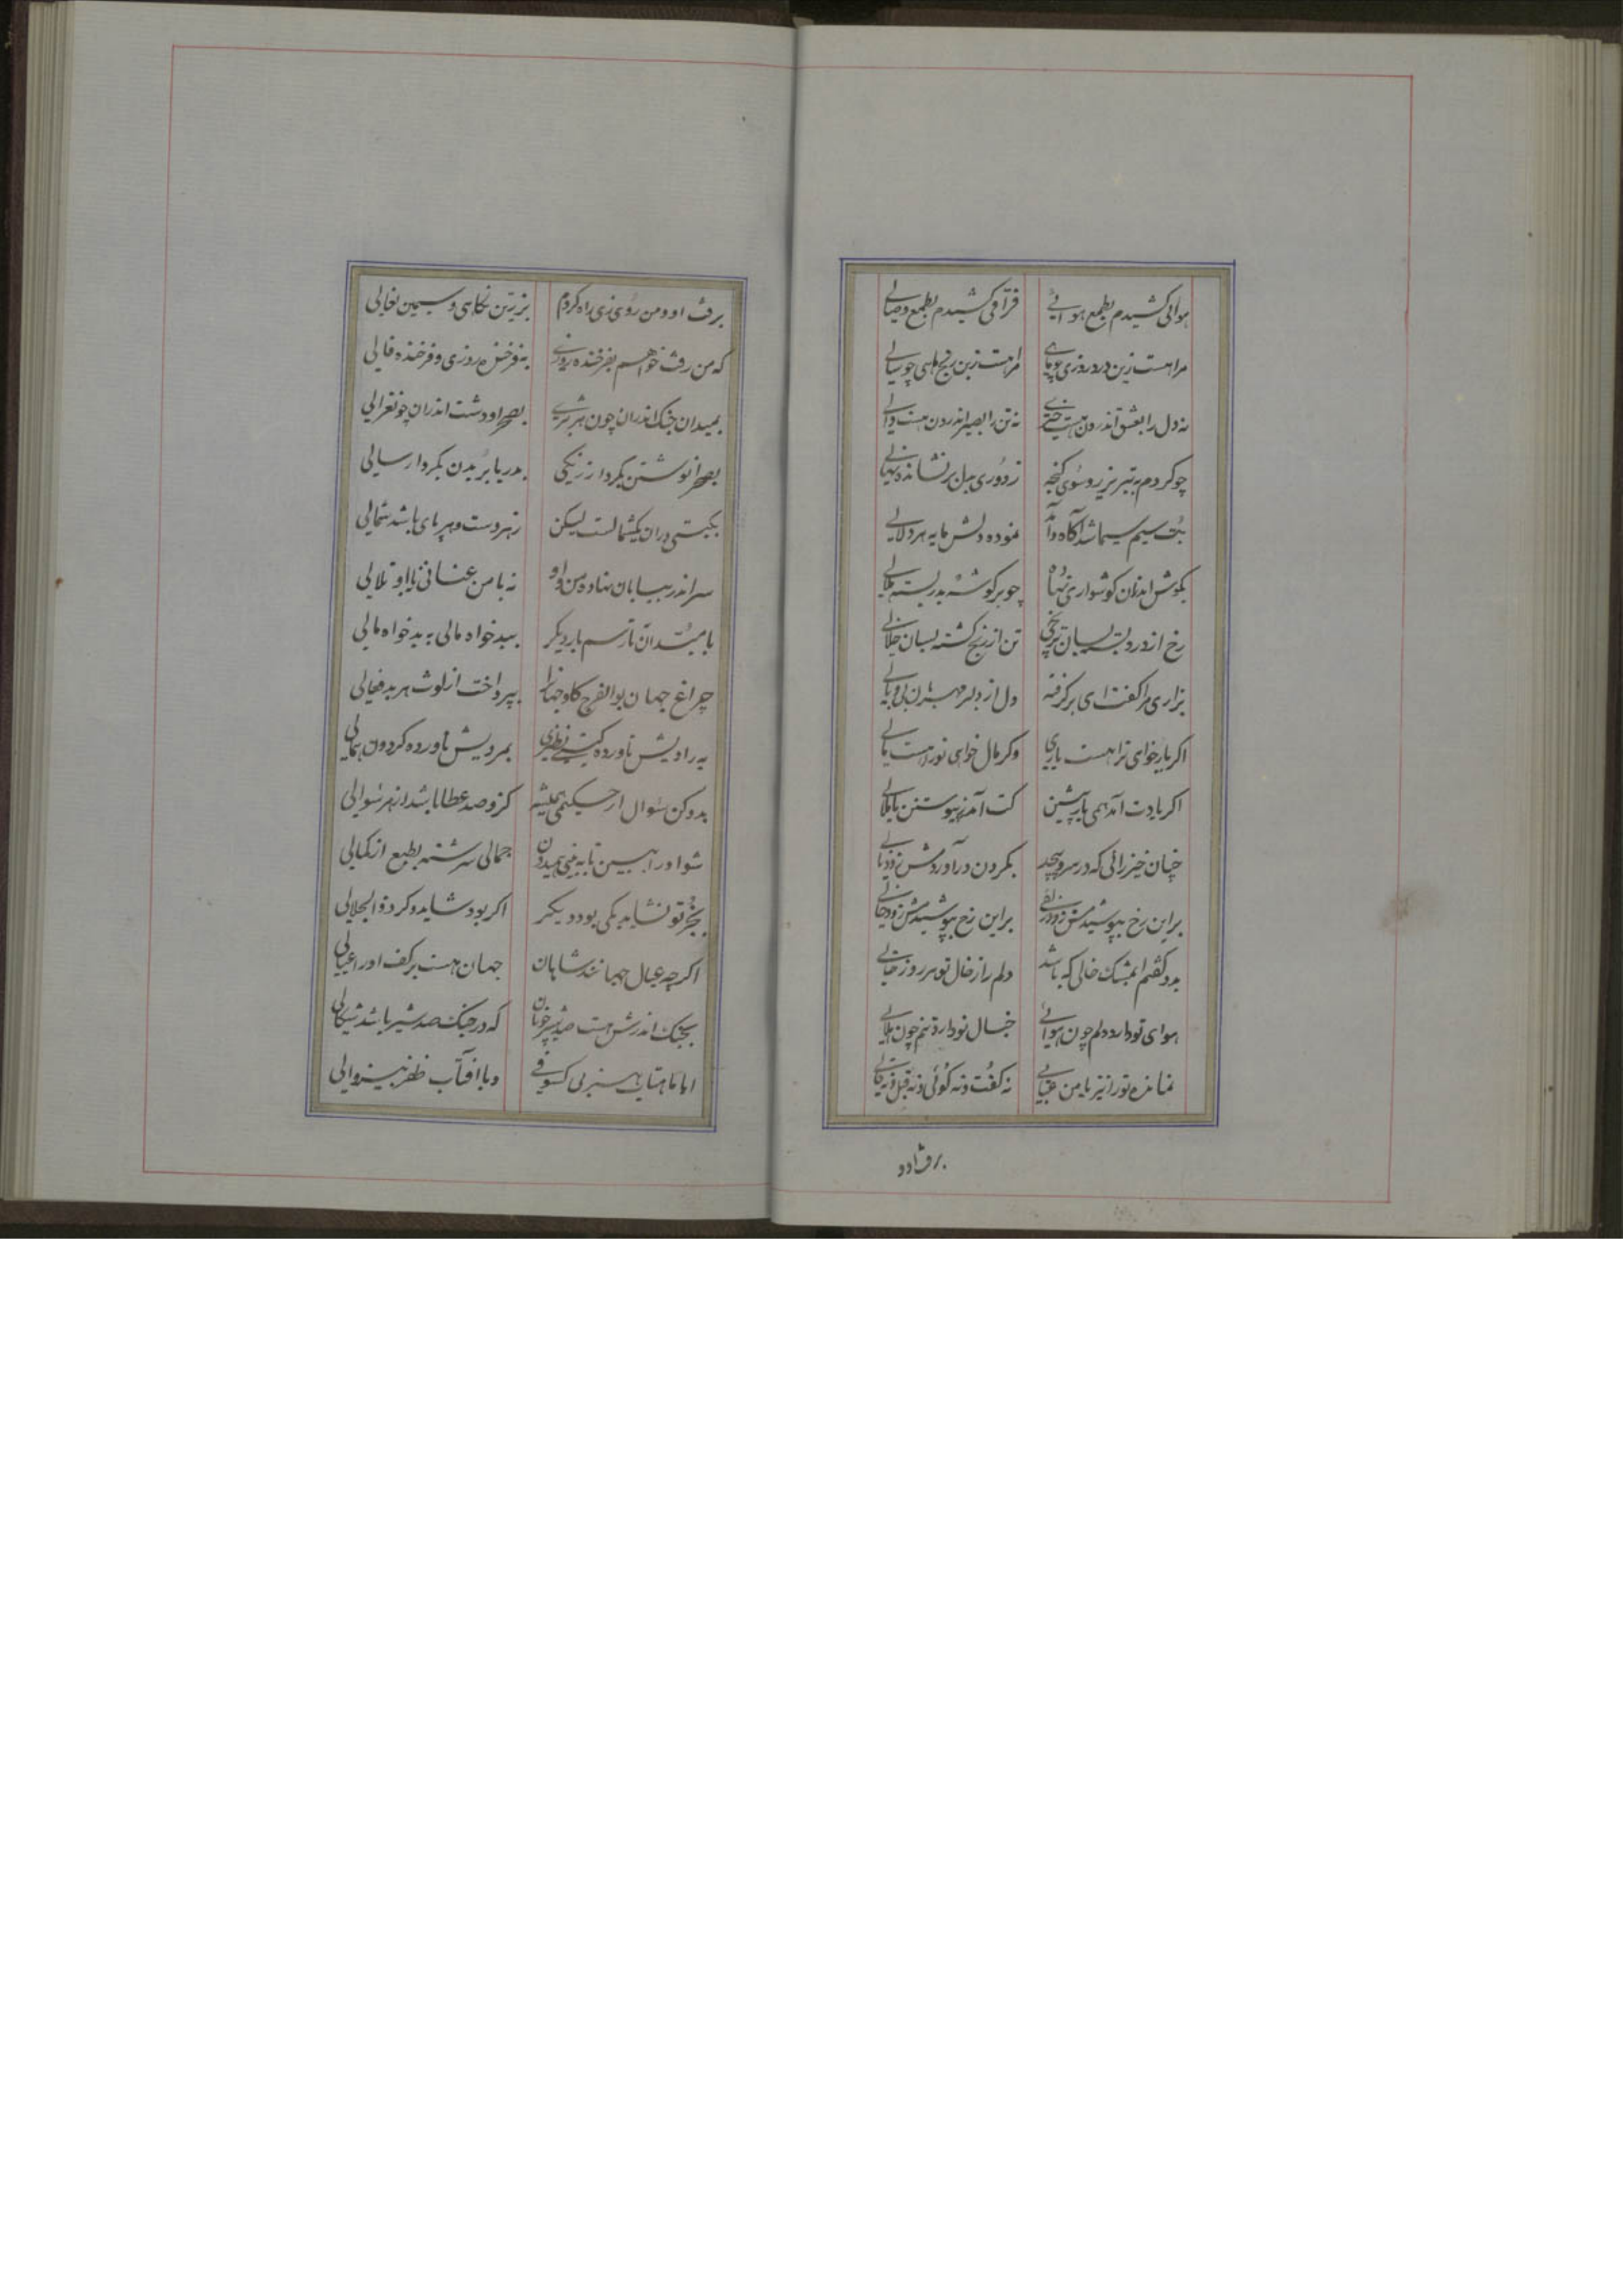 هوائی کشیدم بطمع هوائی فراقی کشیدم بطمع وصالی
مرا هست زین درد روزی چو ماهی مرا هست زین رنج ماهی چو سالی
نه دل را بعشق اندرون هست نه تن را بصبر اندرون هست
چو کردم به تبریز رو سوی کنجه ز دوری بدل بر نشانده نهالی
بت سیم سیما شد آگاه و آمد نموده دلش مایه هر دلالی
بگوش اندران گوشواری نهاده چو بر گوشه بدر بسته هلالی
رخ از درد بسان ترنجی تن از رنج گشته بسان خلالی
بزاری مرا گفت ای برگرفته دل از دلبر مهربان بی وبالی
اگر یار خواهی ترا هست یاری وگر مال خواهی تو را هست مالی
اگر یادت آمد همی یار پیشین کت آمد ز پیوستن ما ملالی
چنان خیزرانی که در سرو پیچد بگردن درآوردمش زود
براین رخ بپوشیدمش زود براین رخ بپوشیدمش زود
بدو گفتم ای مشک خالی که باشد دلم را ز خال تو هر روز حالی
هوای تو دارد دلم چون هوائی خیال تو دارد تنم چون
نمانده تو را نیز با من عتابی نه گفت و نه گوئی و نه قیل و نه قالی
برفت او
برفت او و من روی زی راه کردم بزرین نگاهی و سیمین نعالی
که من رفت خواهم بفرخنده روزی به فرخنده روزی و فرخنده فالی
بمیدان جنک اندران چون هژبری بصحرا و دشت اندران چو نغزالی
بصحرا نوشتن بکردار زنگی بدریا بریدن بکردار سالی
بگیتی دران یکشمالست لیکن ز هر دست و هر پای باشد شمالی
سر اندر بیابان نهاده من و او نه با من عنانی نه با او تلالی
بامید ان تا رسم بار دیگر ببدخواه مالی به بدخواه مالی
چراغ جهان بوالفرج کاو جهانرا بپرداخت از لوث هر بدفعالی
به رادیش ناورده گیتی نظیری بمردیش ناورده گردون همالی
بدو کن سوال ار حکیمی همیشه کزو صد عطا باشد از هر سوالی
شو او را ببین تا به بینی همیدون جمالی سرشته بطبع از کمالی
بجز تو نشاید یکی بود دیگر اگر بود شاید و گر ذوالجلالی
اگر چه عیال جهانند شاهان جهان هست بر کف او را عیالی
بجنک اندرش هست صد شیر چونان که در جنک صد شیر باشد شکالی
ایا ماهتاب هنر بی کسوفی و یا آفتاب ظفر بی زوالی